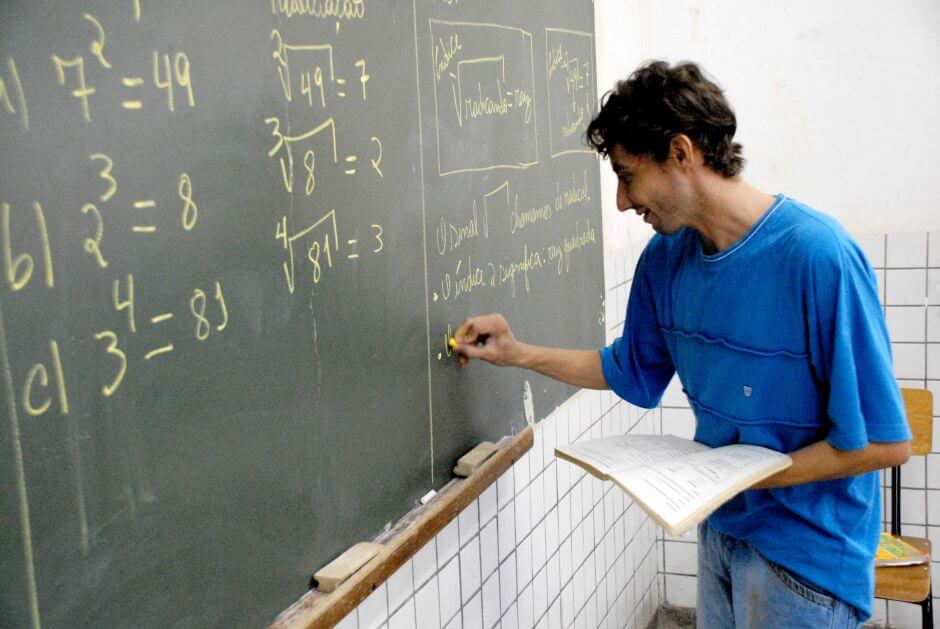 a) 7² = 49
b) 2³ = 8
c) 3⁴ = 81
Radiciação
²√49 = 7
³√8 = 2
⁴√81 = 3
índice
√radicando = raiz
O sinal √ chamamos de radical.
• O índice 2 significa: raiz quadrada
•